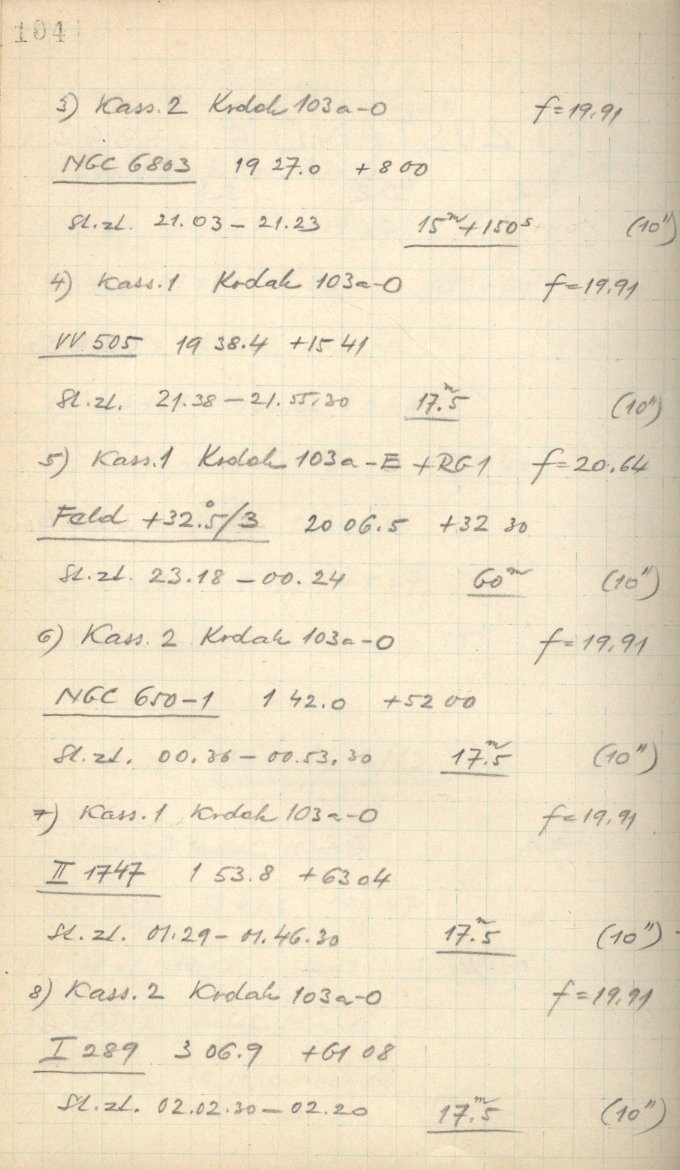 104
3) Kass. 2 Kodak 103a-O f=19.91
NGC 6803 19 27.0 +8 00
St.zt. 21.03 – 21.23 15ᵐ+150ˢ (10")
4) Kass. 1 Kodak 103a-O f=19.91
VV 505 19 38.4 +15 41
St.zt. 21.38 – 21.55.30 17ᵐ.5 (10")
5) Kass. 1 Kodak 103a-E +RG1 f=20.64
Feld +32°.5/3 20 06.5 +32 30
St.zt. 23.18 – 00.24 60ᵐ (10")
6) Kass. 2 Kodak 103a-O f=19.91
NGC 650-1 1 42.0 +52 00
St.zt. 00.36 – 00.53.30 17ᵐ.5 (10")
7) Kass. 1 Kodak 103a-O f=19.91
II 1747 1 53.8 +63 04
St.zt. 01.29 – 01.46.30 17ᵐ.5 (10")
8) Kass. 2 Kodak 103a-O f=19.91
I 289 3 06.9 +61 08
St.zt. 02.02.30 – 02.20 17ᵐ.5 (10")